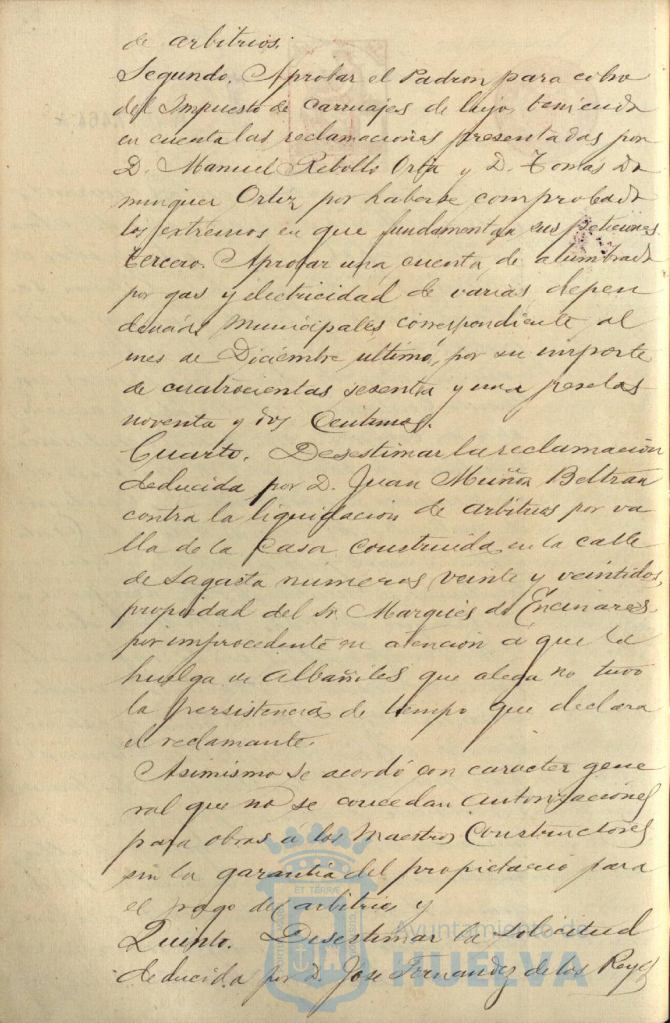 de arbitrios.
Segundo. Aprobar el Padrón para cobro
del Impuesto de carruajes de lujo, teniendo
en cuenta las reclamaciones presentadas por
D. Manuel Rebollo Orta y D. Tomas Do
minguez Ortiz por haberse comprobado
los extremos en que fundamentan sus peticiones.
Tercero. Aprobar una cuenta de alumbrado
por gas y electricidad de varias depen
dencias municipales, correspondiente al
mes de Diciembre ultimo, por su importe
de cuatrocientas sesenta y una pesetas
noventa y dos Centimos.
Cuarto. Desestimar la reclamación
deducida por D. Juan Muñoz Beltrán
contra la liquidación de arbitrios por va
lla de la casa construida en la calle
de Sagasta números veinte y veintidos,
propiedad del Sr. Marqués de Encinares,
por improcedente en atención a que la
huelga de Albañiles que alega no tuvo
la persistencia de tiempo que declara
el reclamante.
Asimismo se acordó con carácter gene
ral que no se concedan autorizaciones
para obras a los Maestros Constructores
sin la garantia del propietario para
el pago de arbitrios y
Quinto. Desestimar la solicitud
deducida por D. Jose Fernandez de los Reyes
Ayuntamiento de
HUELVA